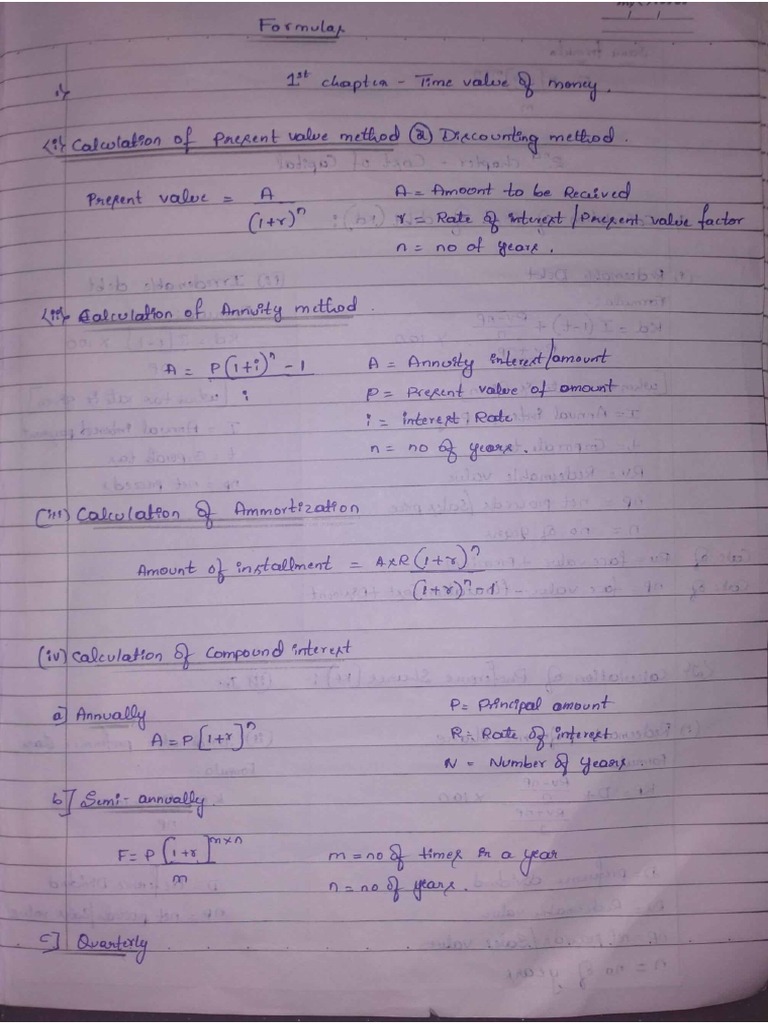 Formulas
i)
1st chapter - Time value of money.
(i) Calculation of Present value method (or) Discounting method.
Present value = A / (1+r)^n   A = Amount to be Received
r = Rate of interest / Present value factor
n = no of years.
(ii) Calculation of Annuity method.
A = P(1+i)^n - 1 / i   A = Annuity interest/amount
P = Present value of amount
i = interest Rate
n = no of years.
(iii) Calculation of Ammortization
Amount of installment = A×R(1+r)^n / (1+r)^n - 1
(iv) Calculation of Compound interest
a] Annually   P = Principal amount
A = P[1+r]^n   R = Rate of interest
N = Number of years
b] Semi-annually.
F = P[1+r / m]^m×n   m = no of times in a year
n = no of years.
c] Quarterly